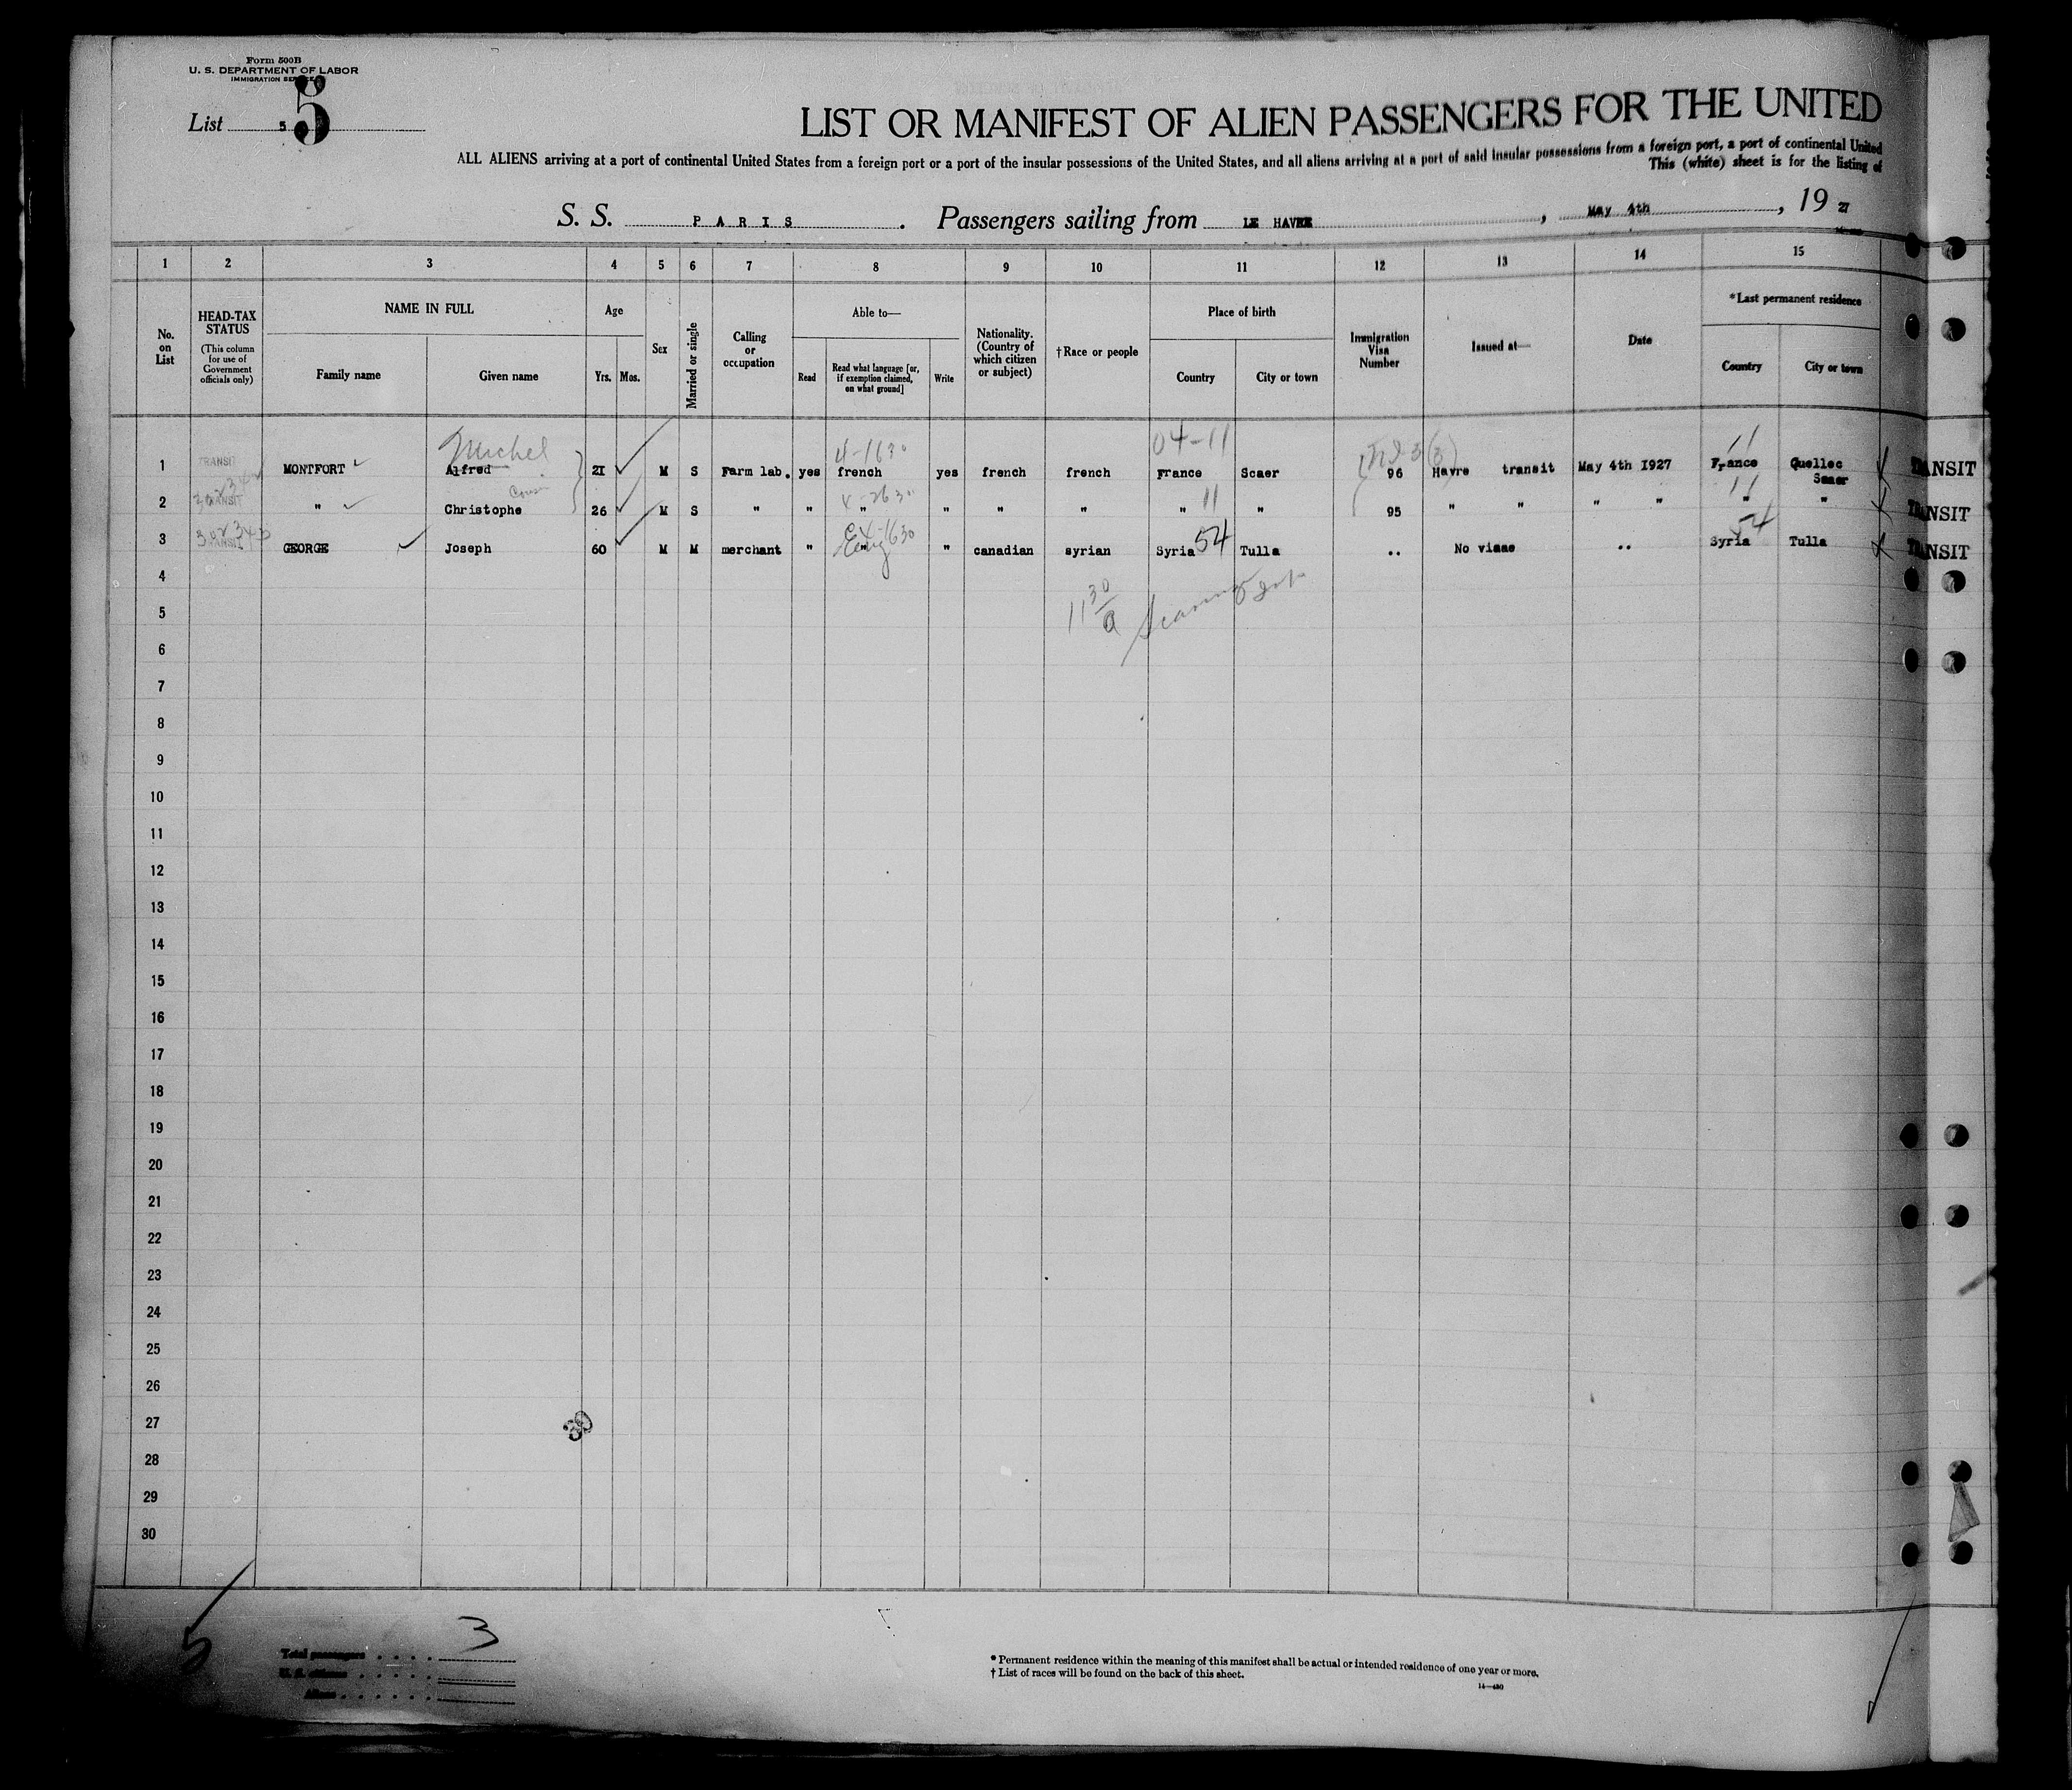 Form 500B
U. S. DEPARTMENT OF LABOR
IMMIGRATION SERVICE
List 5 5
LIST OR MANIFEST OF ALIEN PASSENGERS FOR THE UNITED
ALL ALIENS arriving at a port of continental United States from a foreign port or a port of the insular possessions of the United States, and all aliens arriving at a port of said insular possessions from a foreign port, a port of continental United
This (white) sheet is for the listing of
S. S. PARIS. Passengers sailing from LE HAVRE, May 4th, 19 27
1 2 3 4 5 6 7 8 9 10 11 12 13 14 15
No. on List
HEAD-TAX STATUS
(This column for use of Government officials only)
NAME IN FULL
Family name Given name
Age
Yrs. Mos.
Sex
Married or single
Calling or occupation
Able to—
Read Read what language [or, if exemption claimed, on what ground] Write
Nationality. (Country of which citizen or subject)
†Race or people
Place of birth
Country City or town
Immigration Visa Number
Issued at—
Date
*Last permanent residence
Country City or town
Michel 4-1630 04-11 11
1 TRANSIT MONTFORT Alfred 21 M S Farm lab. yes french yes french french France Scaer 96 Havre transit May 4th 1927 France Quellec Scaer TRANSIT
Cousin 11 11
2 TRANSIT " Christophe 26 M S " " " " " " " " 95 " " " " " " TRANSIT
54
3 TRANSIT GEORGE Joseph 60 M M merchant " " " canadian syrian Syria 54 Tulla .. No visae .. Syria Tulla TRANSIT
4
5 11 30/a
6
7
8
9
10
11
12
13
14
15
16
17
18
19
20
21
22
23
24
25
26
27
28
29
30
5
Total passengers 3
U. S. citizens
Aliens
* Permanent residence within the meaning of this manifest shall be actual or intended residence of one year or more.
† List of races will be found on the back of this sheet.
14—430